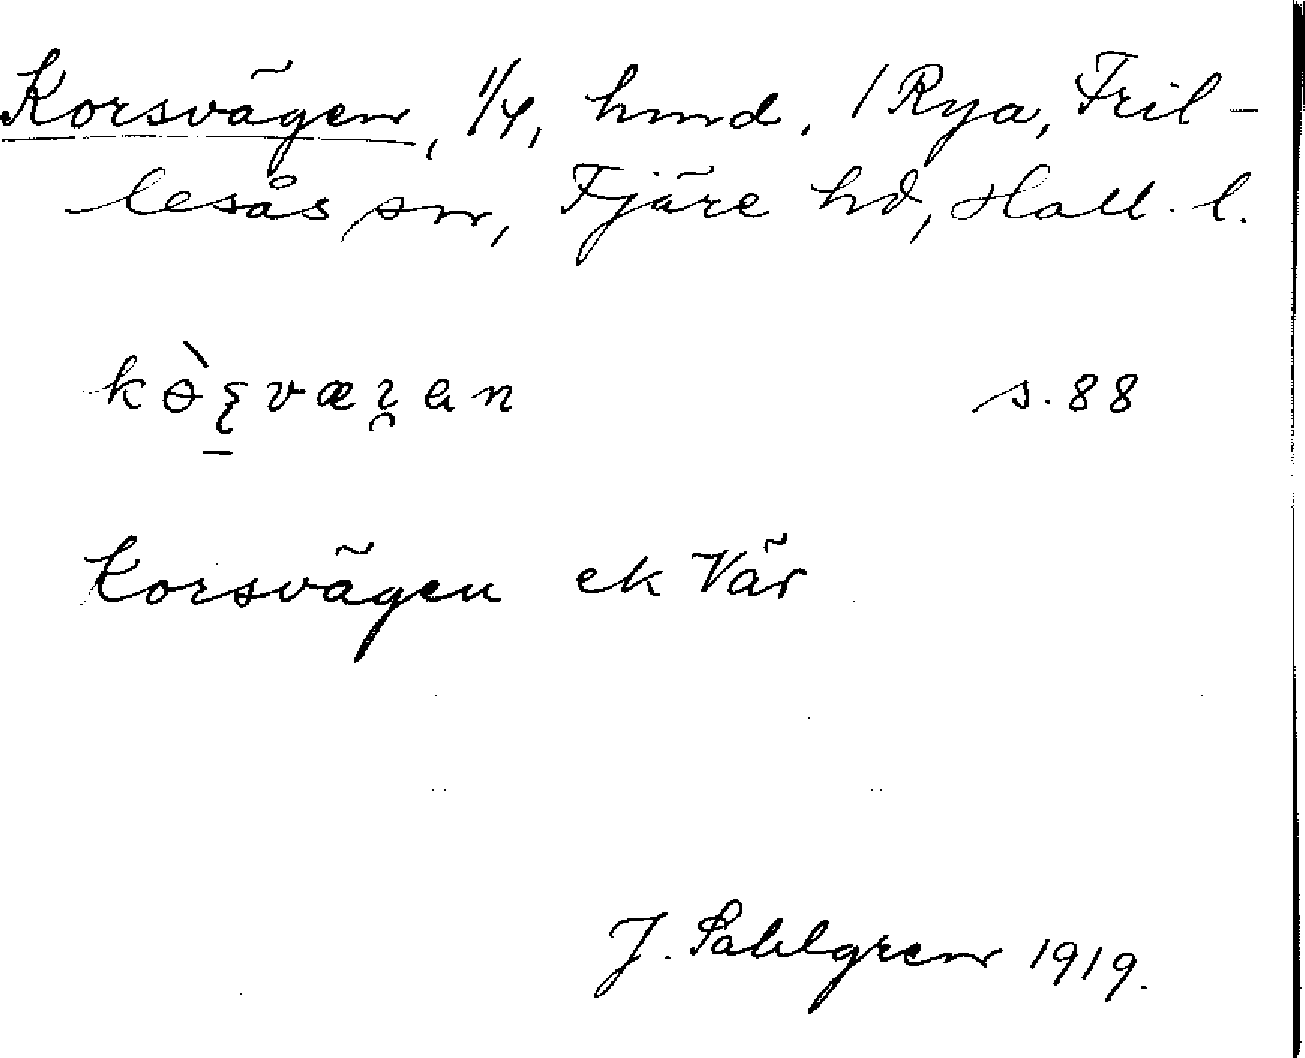 Korsvägen, 1/4, hmd. 1 Rya, Fril-
lesås sn, Fjäre hd, Hall. l.
s. 88
Korsvägen ek Vär
J. Sahlgren 1919.